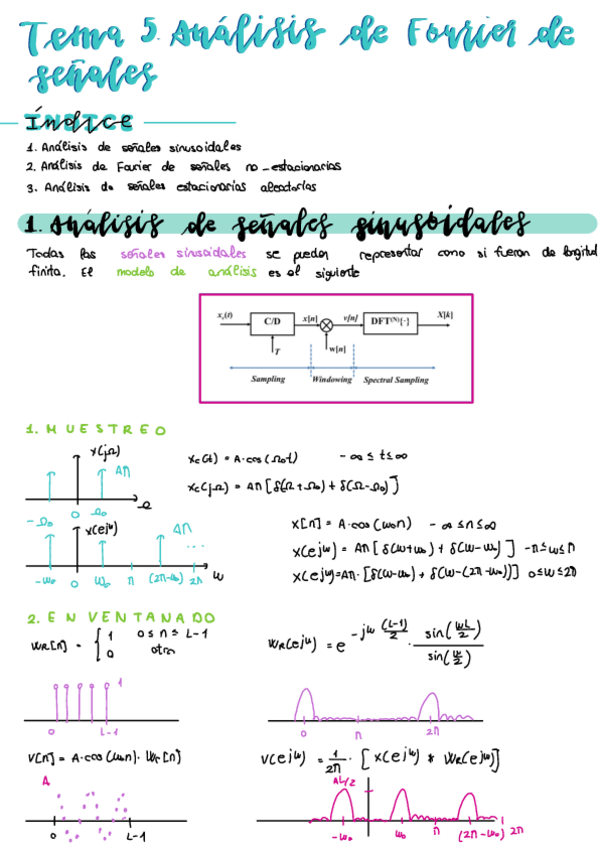 Tema 5. Análisis de Fourier de
señales
ÍNDICE
1. Análisis de señales sinusoidales
2. Análisis de Fourier de señales no-estacionarias
3. Análisis de señales estacionarias aleatorias
1. Análisis de señales sinusoidales
Todas las señales sinusoidales se pueden representar como si fueran de longitud
finita. El modelo de análisis es el siguiente
x_c(t) C/D x[n] v[n] DFT^(N){·} X[k]
T w[n]
Sampling Windowing Spectral Sampling
1. MUESTREO
X(jΩ)
AΠ
-Ω₀ 0 Ω₀ Ω
Xc(t) = A·cos(Ω₀t) -∞ ≤ t ≤ ∞
Xc(jΩ) = AΠ[δ(Ω+Ω₀) + δ(Ω-Ω₀)]
X(e^jω)
AΠ
...
-ω₀ 0 ω₀ Π (2Π-ω₀) 2Π ω
X[n] = A·cos(ω₀n) -∞ ≤ n ≤ ∞
X(e^jω) = AΠ[δ(ω+ω₀) + δ(ω-ω₀)] -Π≤ω≤Π
X(e^jω)=AΠ·[δ(ω-ω₀) + δ(ω-(2Π-ω₀))] 0≤ω≤2Π
2. ENVENTANADO
W_R[n] = { 1 0≤n≤L-1
0 otro
W_R(e^jω) = e^(-jω (L-1)/2) · sin(ωL/2) / sin(ω/2)
1
0 L-1
0 Π 2Π
V[n] = A·cos(ω₀n)·W_r[n]
V(e^jω) = 1/2Π · [X(e^jω) * W_R(e^jω)]
A
0 L-1
AL/2
-ω₀ ω₀ Π (2Π-ω₀) 2Π